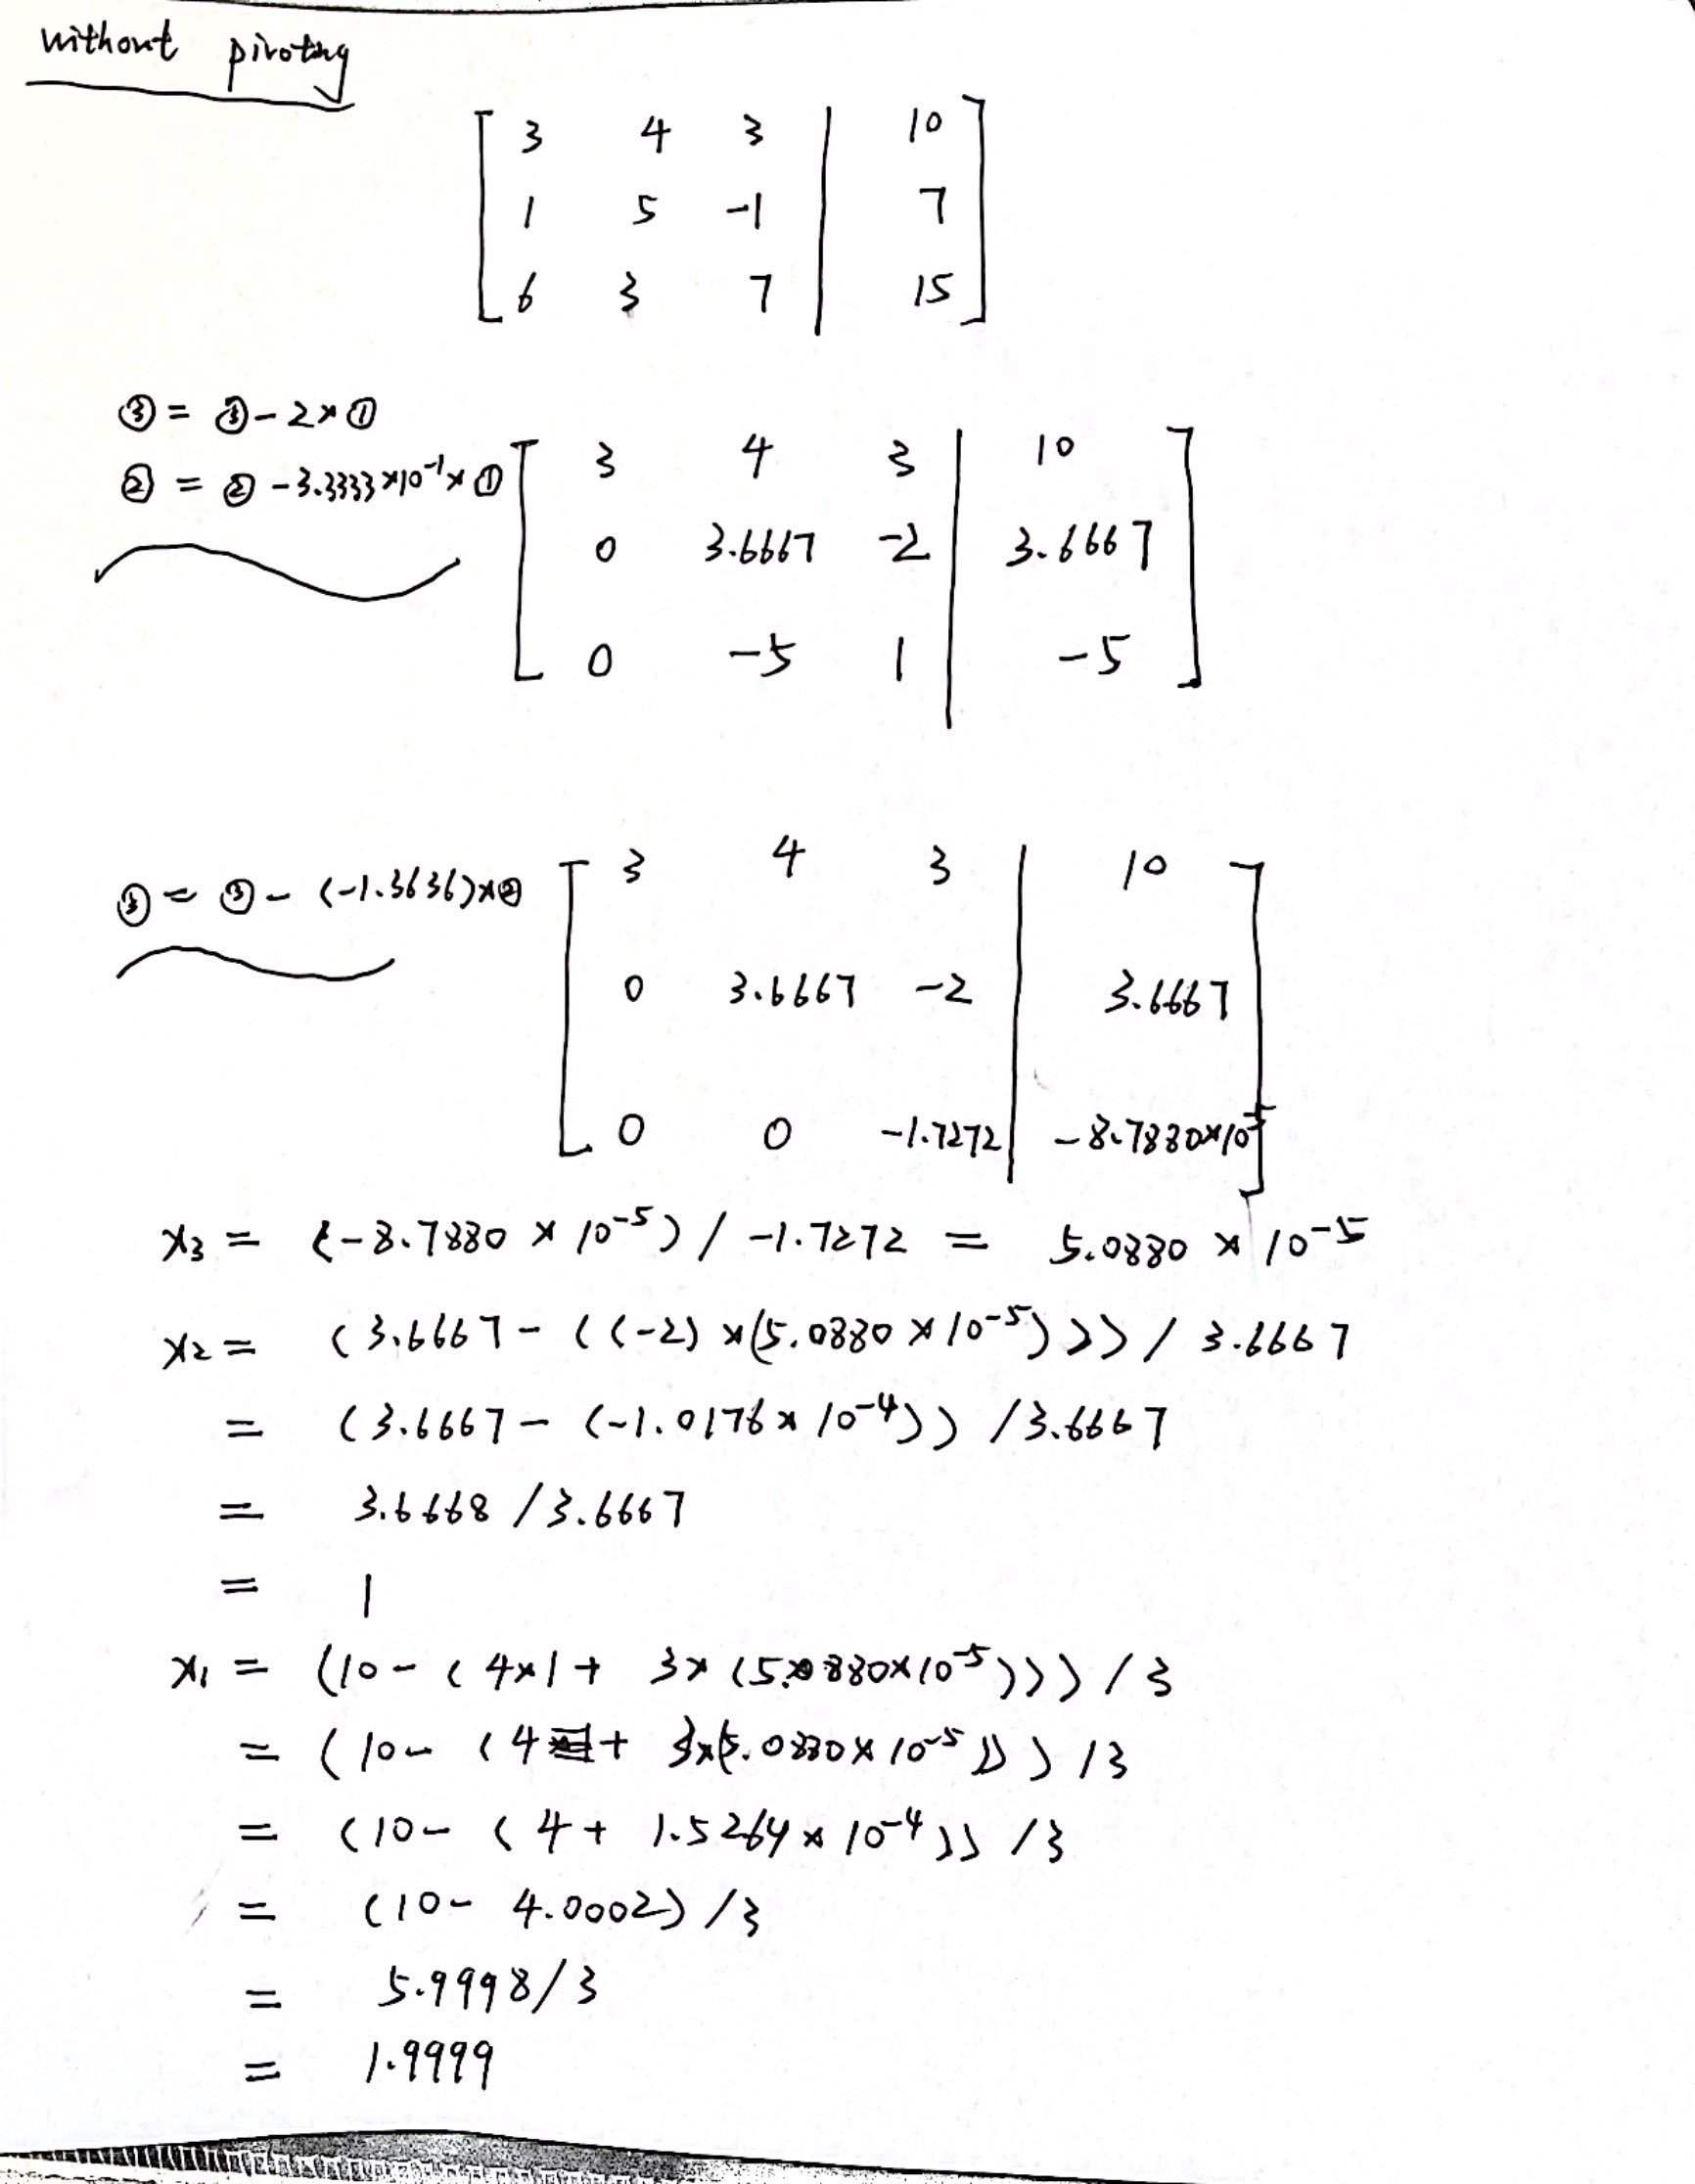 without pivoting
3 4 3 | 10
1 5 -1 | 7
6 3 7 | 15
③ = ③ - 2×①
② = ② - 3.3333×10⁻¹×①
3 4 3 | 10
0 3.6667 -2 | 3.6667
0 -5 1 | -5
③ = ③ - (-1.3636)×②
3 4 3 | 10
0 3.6667 -2 | 3.6667
0 0 -1.7272 | -8.7880×10⁻⁵
x₃ = (-8.7880 × 10⁻⁵) / -1.7272 = 5.0880 × 10⁻⁵
x₂ = (3.6667 - ((-2) × (5.0880 × 10⁻⁵))) / 3.6667
= (3.6667 - (-1.0176 × 10⁻⁴)) / 3.6667
= 3.6668 / 3.6667
= 1
x₁ = (10 - (4×1 + 3× (5.0880×10⁻⁵))) / 3
= (10 - (4 + 3×(5.0880 × 10⁻⁵))) / 3
= (10 - (4 + 1.5264 × 10⁻⁴)) / 3
= (10 - 4.0002) / 3
= 5.9998 / 3
= 1.9999